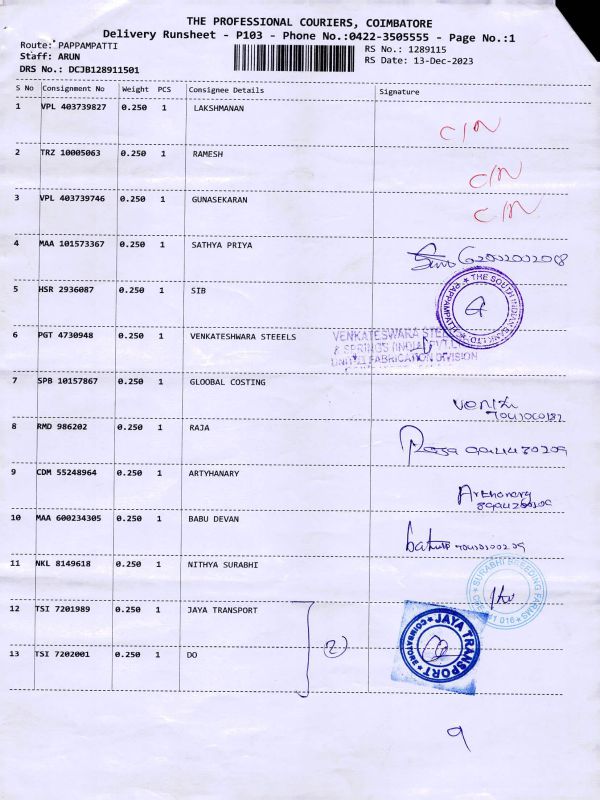 THE PROFESSIONAL COURIERS, COIMBATORE
Delivery Runsheet - P103 - Phone No.:0422-3505555 - Page No.:1
Route: PAPPAMPATTI
RS No.: 1289115
Staff: ARUN
RS Date: 13-Dec-2023
DRS No.: DCJB128911501
S No Consignment No Weight PCS Consignee Details Signature
1 VPL 403739827 0.250 1 LAKSHMANAN C/N
2 TRZ 10005063 0.250 1 RAMESH C/N
3 VPL 403739746 0.250 1 GUNASEKARAN C/N
4 MAA 101573367 0.250 1 SATHYA PRIYA
5 HSR 2936087 0.250 1 SIB
THE SOUTH INDIAN BANK LTD.
6 PGT 4730948 0.250 1 VENKATESHWARA STEEELS
VENKATESWARA STEELS
& SPRINGS (INDIA) PVT. LTD
FABRICATION DIVISION
7 SPB 10157867 0.250 1 GLOOBAL COSTING
8 RMD 986202 0.250 1 RAJA
9 CDM 55248964 0.250 1 ARTYHANARY
10 MAA 600234305 0.250 1 BABU DEVAN
11 NKL 8149618 0.250 1 NITHYA SURABHI
SURABHI BREEDING FARMS
12 TSI 7201989 0.250 1 JAYA TRANSPORT
JAYA TRANSPORT
COIMBATORE
13 TSI 7202001 0.250 1 DO
2
9